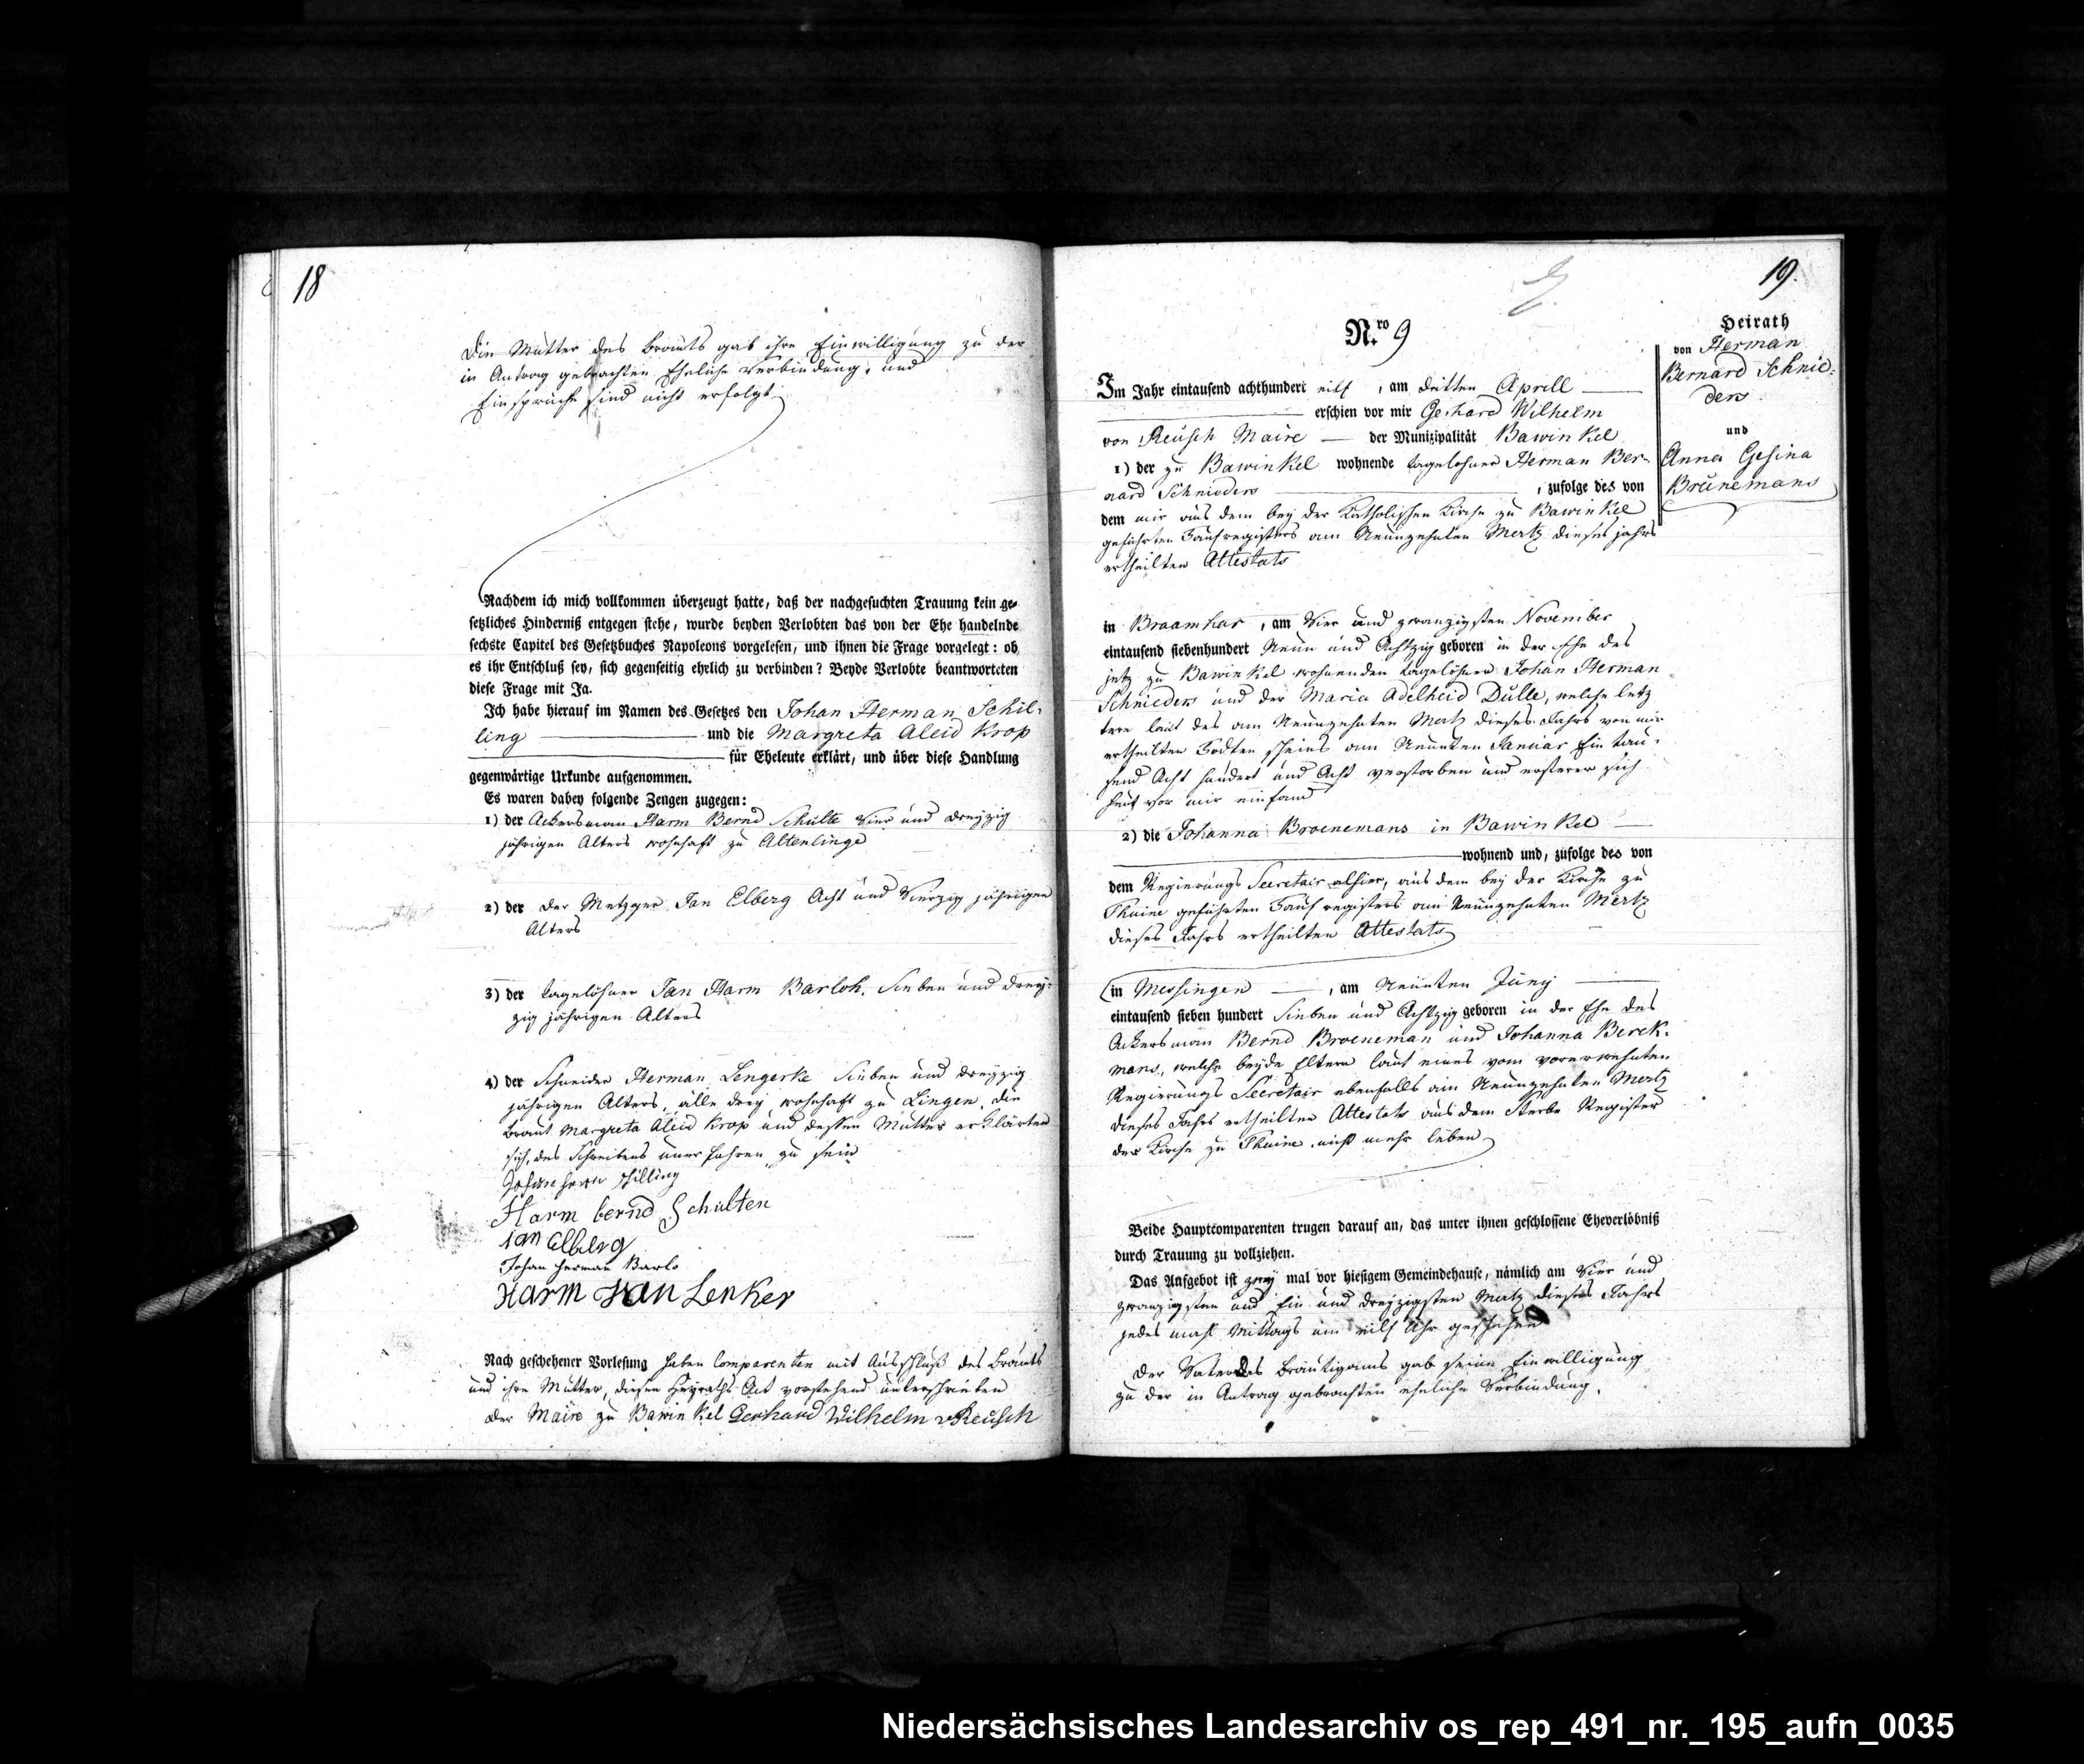 18
Die Mutter des Brauts gab ihre Einwilligung zu der
in Antrag gebrachten Eheliche Verbindung, und
Einsprüche sind nicht erfolgt
Nachdem ich mich vollkommen überzeugt hatte, daß der nachgesuchten Trauung kein ge-
setzliches Hinderniß entgegen stehe, wurde beyden Verlobten das von der Ehe handelnde
sechste Capitel des Gesetzbuches Napoleons vorgelesen, und ihnen die Frage vorgelegt: ob
es ihr Entschluß sey, sich gegenseitig ehelich zu verbinden? Beyde Verlobte beantworteten
diese Frage mit Ja.
Ich habe hierauf im Namen des Gesetzes den Johan Herman Schil-
ling und die Margreta Aleid Krop
für Eheleute erklärt, und über diese Handlung
gegenwärtige Urkunde aufgenommen.
Es waren dabey folgende Zeugen zugegen:
1) der Ackersman Harm Bernd Schulte Vier und Dreyzig
jährigen Alters wohnhaft zu Altenlinge
2) der der Metzger Jan Elberg Acht und Vierzig jährigen
Alters
3) der tagelöhner Jan Harm Barloh, Sieben und drey-
zig jährigen Alters
4) der Schneider Herman Lengerke Sieben und dreyzig
jährigen Alters, alle drey wohnhaft zu Lingen, die
Braut Margreta Aleid Krop und dessen Mutter erklärten
sich, des Schreibens unerfahren zu sein
Johan herm schilling
Harm bernd Schulten
ian Elberg
Johan herman Barlo
Harm Jan Lenker
Nach geschehener Vorlesung haben Comparenten mit Ausschluß des Brauts
und ihre Mutter, diesen Heyraths Act vorstehend unterschrieben
der Maire zu Bawinkel Gerhard Wilhelm v Reusch
19.
Nro. 9
Heirath
von Herman
Bernard Schnie-
ders
und
Anna Gesina
Brünemans
Im Jahr eintausend achthundert eilf, am dritten Aprill
erschien vor mir Gerhard Wilhelm
von Reusch Maire der Munizipalität Bawinkel
1) der zu Bawinkel wohnende tagelohner Herman Ber-
nard Schnieders, zufolge des von
dem mir aus dem bey der Katholischen Kirche zu Bawinkel
geführten Taufregisters am Neunzehnten Mertz dieses jahrs
ertheilten Attestats
in Braamhar, am Vier und zwanzigsten November
eintausend siebenhundert Neun und Achtzig geboren in der Ehe des
jetz zu Bawinkel wohnenden tagelöhner Johan Herman
Schnieders und der Maria Adelheid Dulle, welche letz
tere laut des am Neunzehnten Mertz dieses Jahrs von mir
ertheilten Todten scheins am Neunten Januar Ein tau-
send Acht hundert und Acht verstorben und ersterer sich
heut vor mir einfand
2) die Johanna Broenemans in Bawinkel
wohnend und, zufolge des von
dem Regierungs Secretair alhier, aus dem bey der Kirche zu
Thuine geführten Tauf registers am Neunzehnten Mertz
dieses Jahrs ertheilten Attestats
in Messingen, am Neunten Juny
eintausend sieben hundert Sieben und Achtzig geboren in der Ehe des
Ackersman Bernd Broeneman und Johanna Berck-
mans, welche beyde Eltern laut eines vom vorerwehnten
Regierungs Secretair ebenfalls am Neunzehnten Mertz
dieses Jahrs ertheilten Attestats aus dem Sterbe Register
der Kirche zu Thuine nicht mehr leben
Beide Hauptcomparenten trugen darauf an, das unter ihnen geschlossene Eheverlöbniß
durch Trauung zu vollziehen.
Das Aufgebot ist zwey mal vor hiesigem Gemeindehause, nämlich am Vier und
zwanzigsten und Ein und dreyzigsten Mertz dieses Jahrs
jedes mahl Mittags um eilf Uhr geschehen
Der Vater des Bräutigams gab seine Einwilligung
zu der in Antrag gebrachten eheliche Verbindung.
Niedersächsisches Landesarchiv os_rep_491_nr._195_aufn_0035